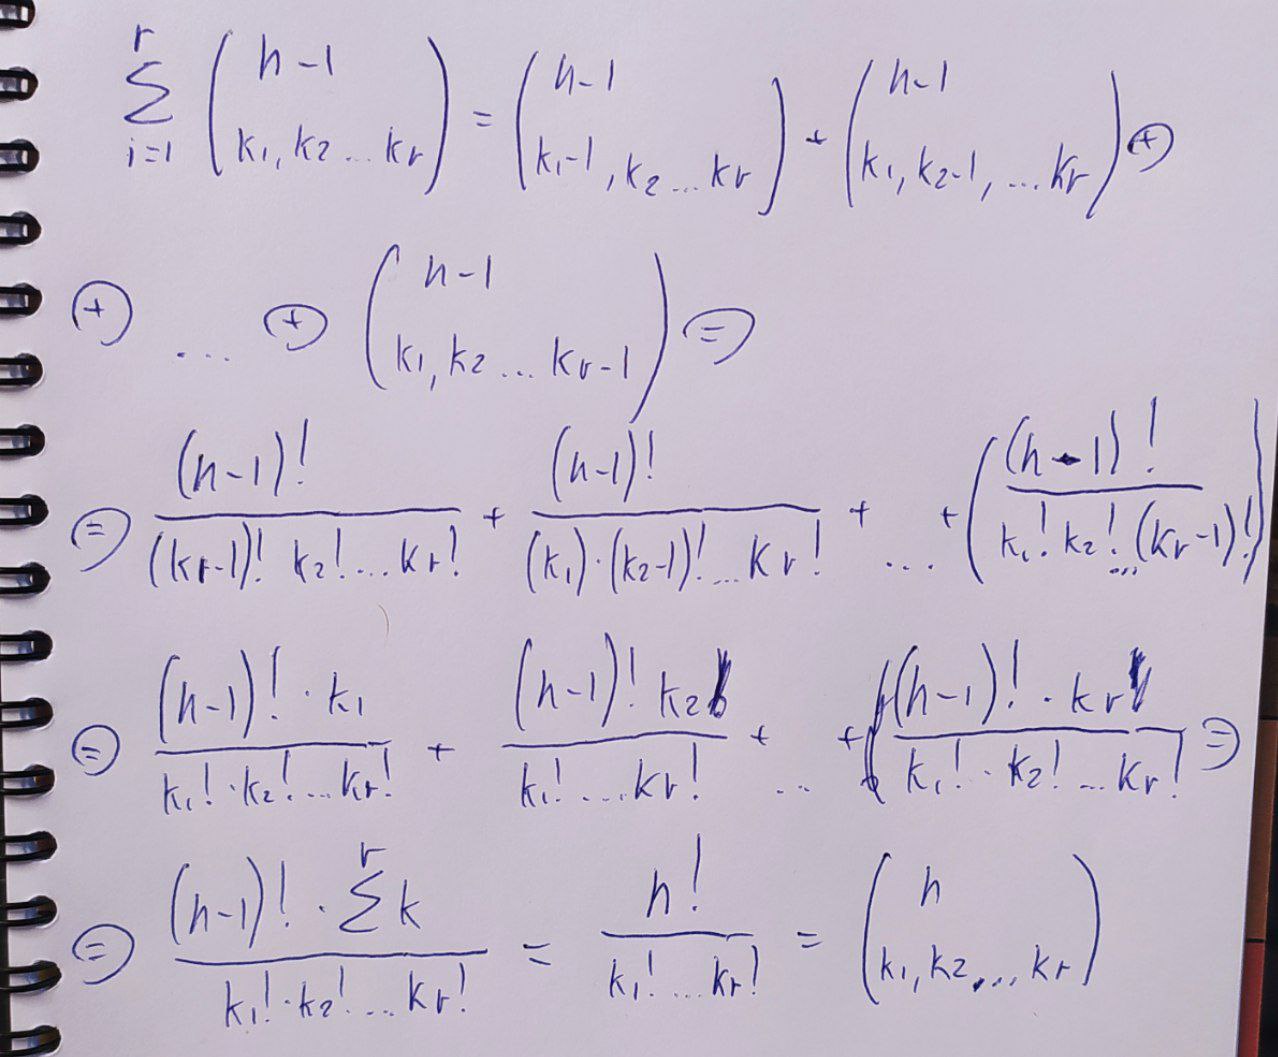 \sum_{i=1}^{r} \binom{n-1}{k_1, k_2 ... k_r} = \binom{n-1}{k_1-1, k_2 ... k_r} + \binom{n-1}{k_1, k_2-1, ... k_r} ⊕
⊕ ... ⊕ \binom{n-1}{k_1, k_2 ... k_r-1} ⊜
⊜ \frac{(n-1)!}{(k_r-1)! k_2! ... k_r!} + \frac{(n-1)!}{(k_1) \cdot (k_2-1)! ... k_r!} + ... + \left(\frac{(n-1)!}{k_1! k_2! ... (k_r-1)!}\right)
⊜ \frac{(n-1)! \cdot k_1}{k_1! \cdot k_2! ... k_r!} + \frac{(n-1)! k_2}{k_1! ... k_r!} + ... + \frac{(n-1)! \cdot k_r}{k_1! \cdot k_2! ... k_r!} ⊜
⊜ \frac{(n-1)! \cdot \sum^{r} k}{k_1! \cdot k_2! ... k_r!} = \frac{n!}{k_1! ... k_r!} = \binom{n}{k_1, k_2, ... k_r}